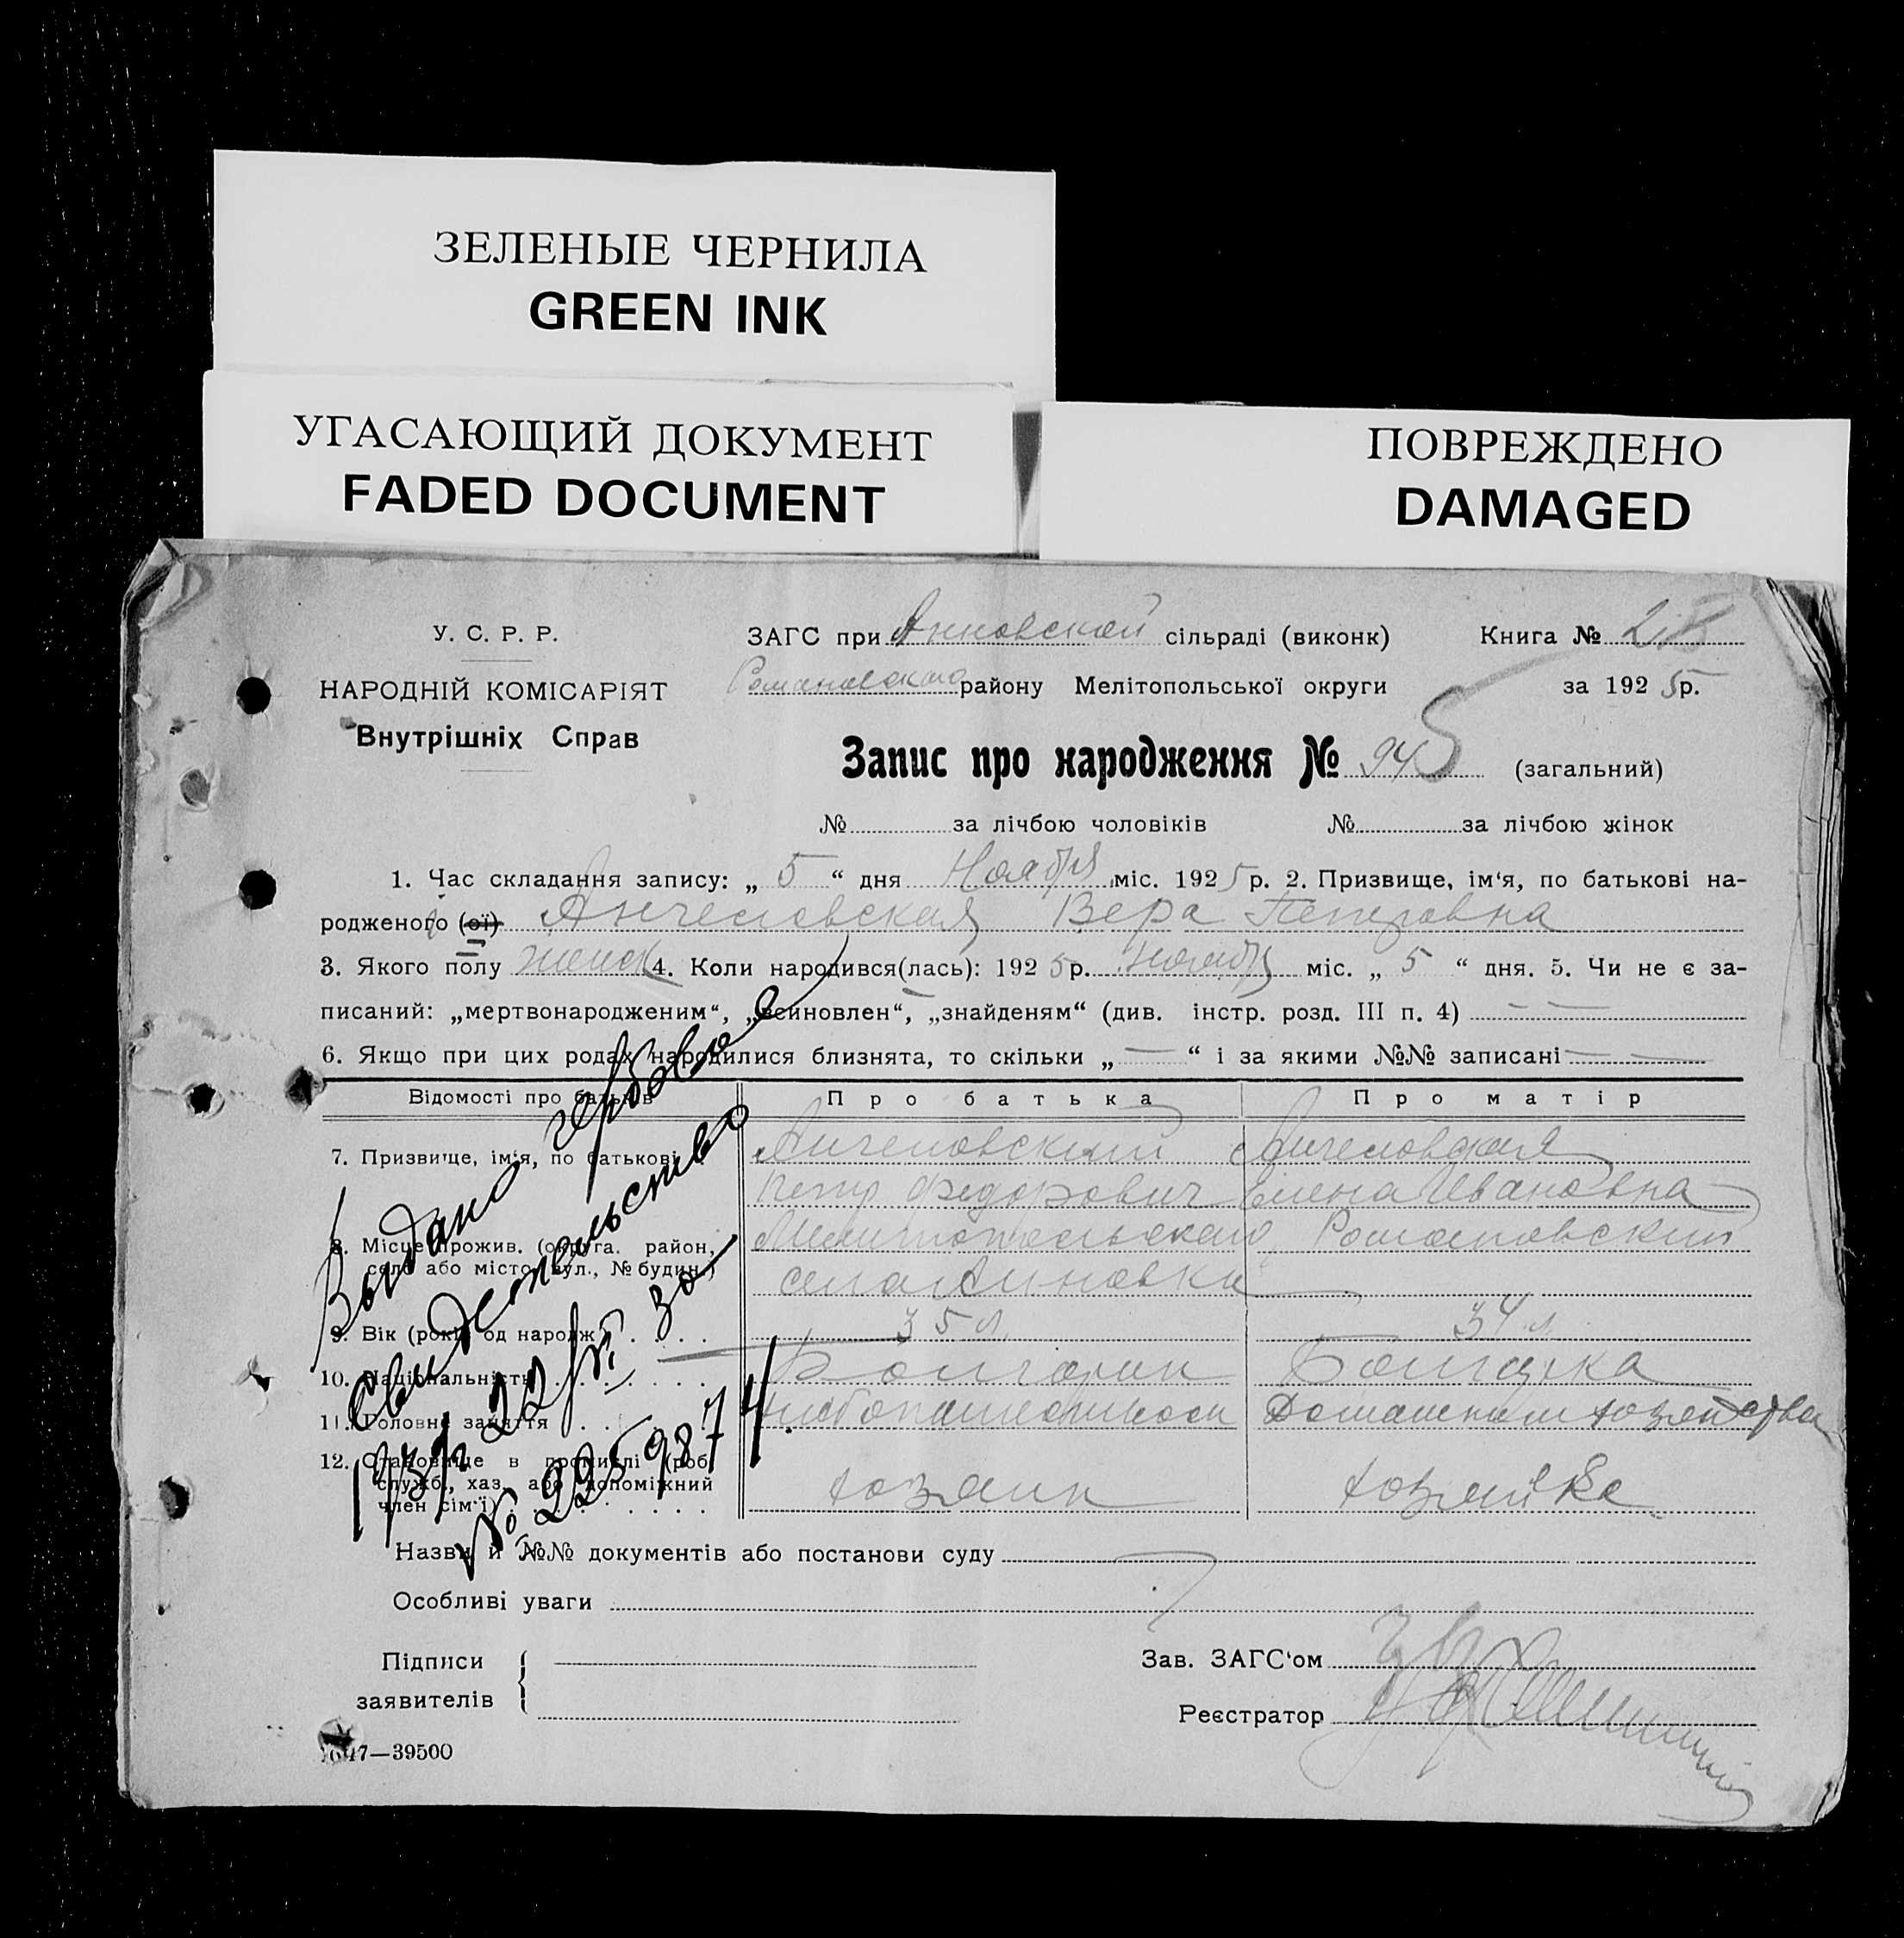 ЗЕЛЕНЫЕ ЧЕРНИЛА
GREEN INK
УГАСАЮЩИЙ ДОКУМЕНТ
FADED DOCUMENT
ПОВРЕЖДЕНО
DAMAGED
У. С. Р. Р.
НАРОДНІЙ КОМІСАРІЯТ
Внутрішніх Справ
ЗАГС при Анновской сільраді (виконк)
Романовского району Мелітопольської округи
Книга №
за 1925р.
Запис про народження № 945 (загальний)
№ за лічбою чоловіків № за лічбою жінок
1. Час складання запису: „ 5 “ дня Ноября міс. 1925 р. 2. Призвище, ім‘я, по батькові на-
родженого (ої) Анчеловская Вера Петровна
3. Якого полу женск 4. Коли народився(лась): 1925р. ноябр міс. „ 5 “ дня. 5. Чи не є за-
писаний: „мертвонародженим“, „всиновлен“, „знайденям“ (див. інстр. розд. III п. 4) — —
6. Якщо при цих родах народилися близнята, то скільки „ — “ і за якими №№ записані — —
Відомості про батьків Про батька Про матір
7. Призвище, ім‘я, по батькові Анчеловский Анчеловская
Петр Федорович Елена Ивановна
8. Місце прожив. (округа. район, Мелитопольского Романовский
село або місто, вул., № будин.) села Анновка
9. Вік (років од народж.) 35 л. 34 л.
10. Національність Болгарин Болгарка
11. Головне заняття хлебопашеством Домашним хозяйством
12. Становище в промислі (роб.
служб., хаз. або допоміжний
член сім‘ї) хозяин хозяйка
Выдано гербовое
Свидетельство
22/VI за
№ 2259874
Назви й №№ документів або постанови суду
Особливі уваги
Підписи
заявителів
Зав. ЗАГС‘ом
Реєстратор
47—39500